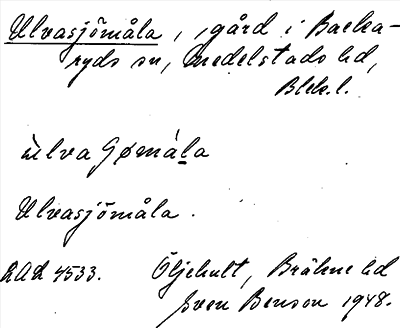 Ulvasjömåla, gård i Backa-
ryds sn, Medelstads hd,
Blek. l.
ùlva Gømá̀la
Ulvasjömåla.
RAÄ 4533. Öljehult, Bräkne hd
Sven Benson 1948.